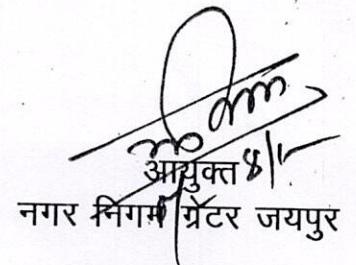 आयुक्त 8/1
नगर निगम ग्रेटर जयपुर